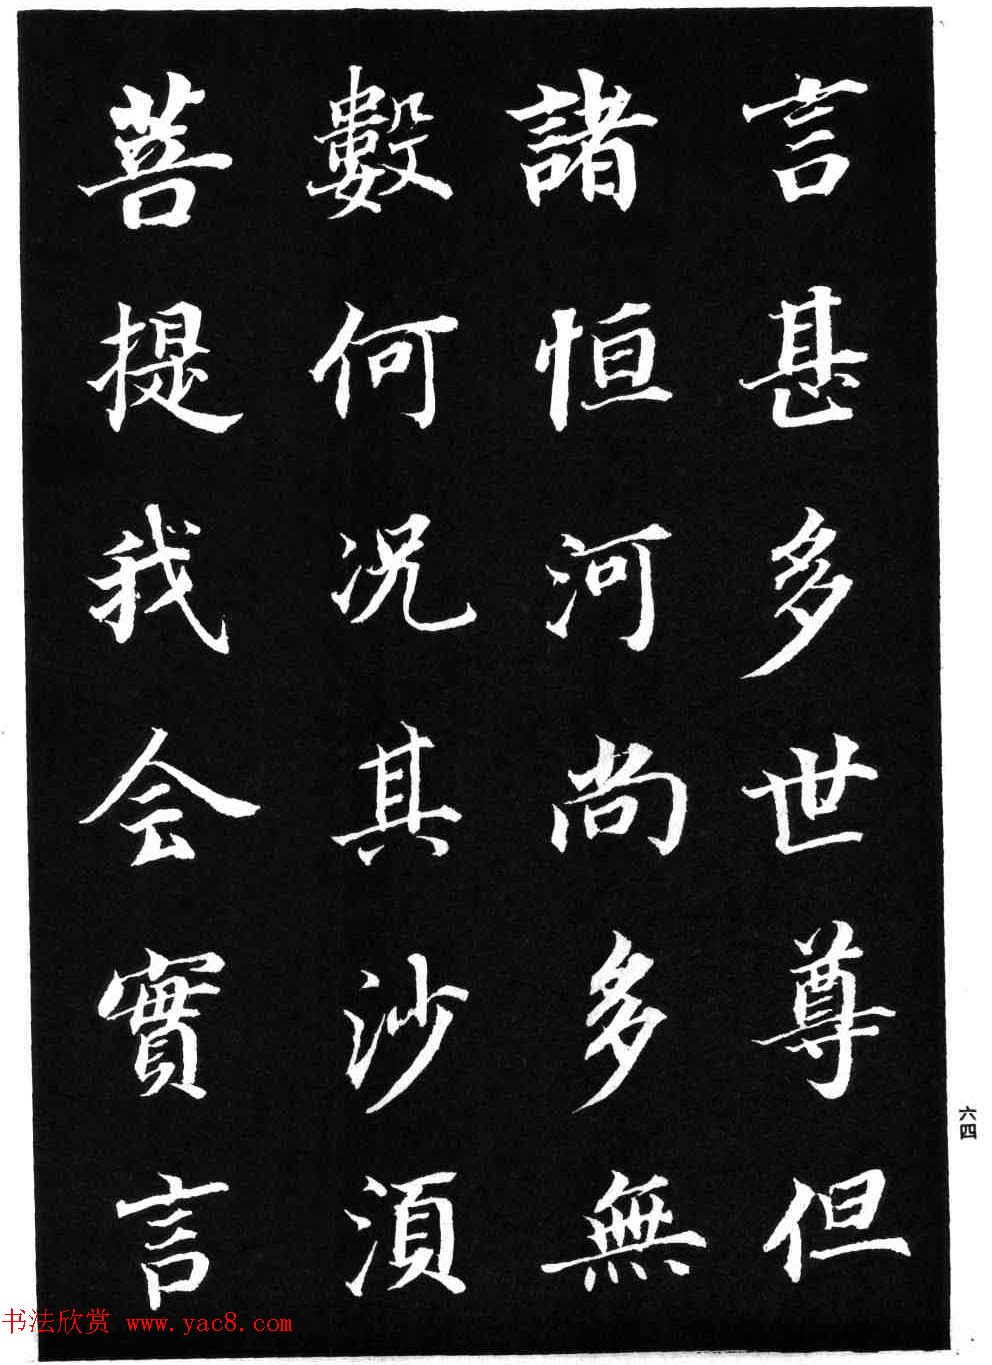 言甚多世尊但
諸恒河尚多無
數何况其沙須
菩提我今實言
六四
书法欣赏 www.yac8.com